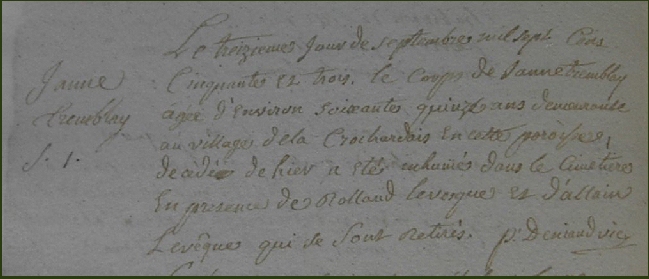 Le treizieme Jour de septembre mil sept Cens
Janne
Cinquante et trois. le Corps de Janne tremblay
tremblay
agée d'Environ soixante quinze ans demeurante
au village de la Crochardois En cette paroisse,
S. 1.
decédée de hier a eté inhumée dans le Cimetiere
En presence de Rolland levesque et d'allain
Levêque qui se sont Retirés. p. Deniaud vic